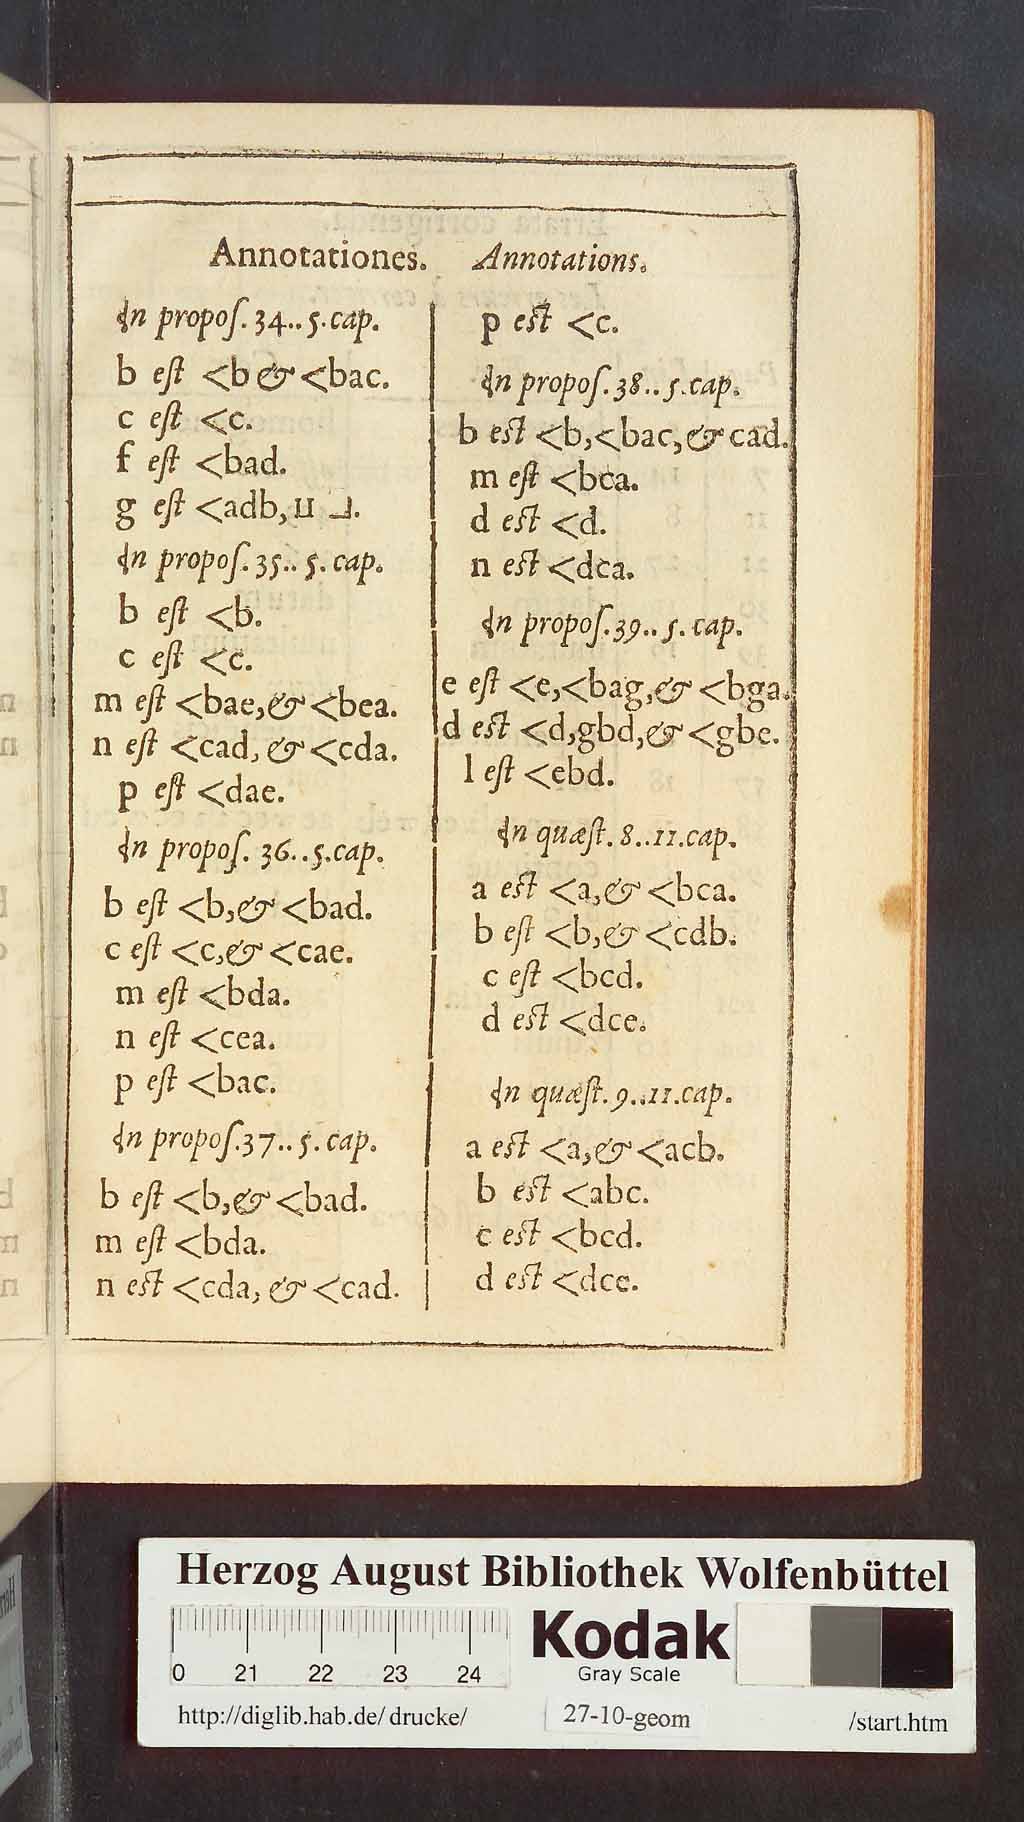 Annotationes. Annotations.
In propoſ. 34.. 5. cap.
b eſt <b & <bac.
c eſt <c.
f eſt <bad.
g eſt <adb, II ⅃.
In propoſ. 35.. 5. cap.
b eſt <b.
c eſt <c.
m eſt <bae, & <bea.
n eſt <cad, & <cda.
p eſt <dae.
In propoſ. 36.. 5. cap.
b eſt <b, & <bad.
c eſt <c, & <cae.
m eſt <bda.
n eſt <cea.
p eſt <bac.
In propoſ. 37.. 5. cap.
b eſt <b, & <bad.
m eſt <bda.
n eſt <cda, & <cad.
p eſt <c.
In propoſ. 38.. 5. cap.
b eſt <b, <bac, & cad.
m eſt <bca.
d eſt <d.
n eſt <dca.
In propoſ. 39.. 5. cap.
e eſt <e, <bag, & <bga.
d eſt <d, gbd, & <gbe.
l eſt <ebd.
In quæſt. 8.. 11. cap.
a eſt <a, & <bca.
b eſt <b, & <cdb.
c eſt <bcd.
d eſt <dce.
In quæſt. 9.. 11. cap.
a eſt <a, & <acb.
b eſt <abc.
c eſt <bcd.
d eſt <dce.
Herzog August Bibliothek Wolfenbüttel
0 21 22 23 24
Kodak
Gray Scale
http://diglib.hab.de/drucke/ 27-10-geom /start.htm